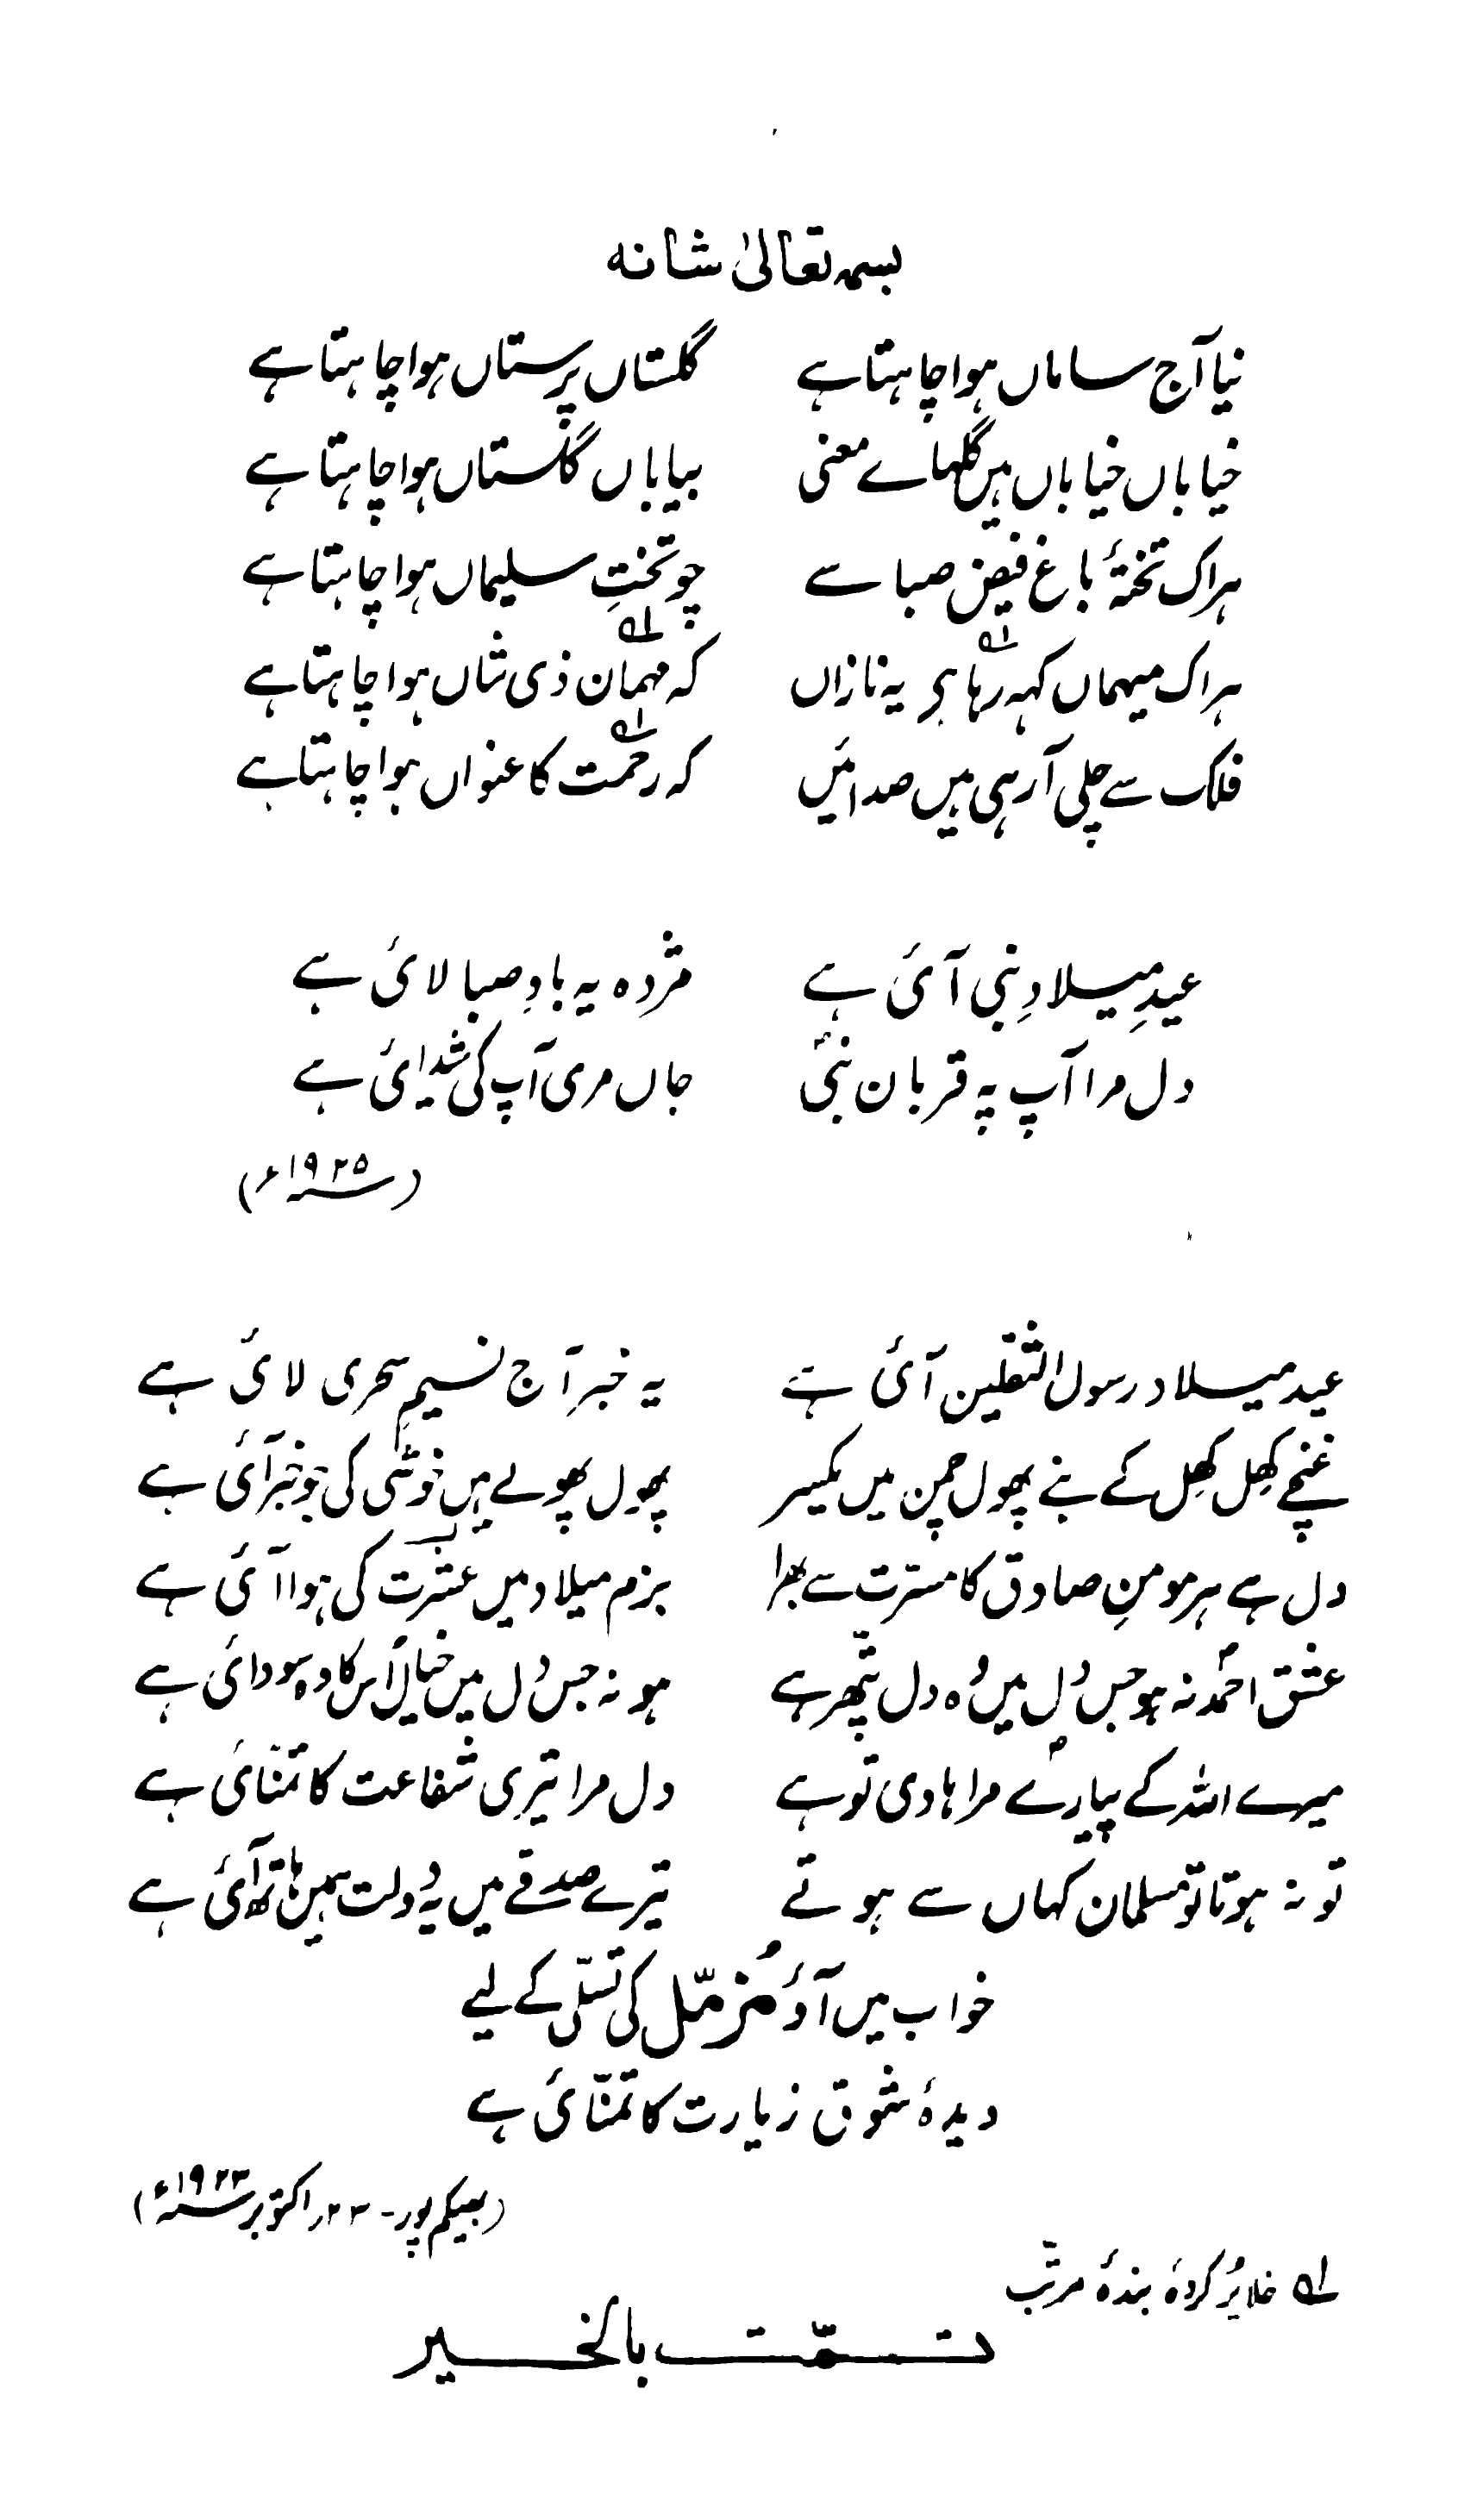 بسمہ تعالیٰ شانہ
نیا آج ساماں ہوا چاہتا ہے گلستاں پرستاں ہوا چاہتا ہے
خیاباں خیاباں ہیں گلہائے معنی بیاباں گلستاں ہوا چاہتا ہے
ہر اک تختۂ باغ فیض صبا سے چو تختِ سلیماں ہوا چاہتا ہے
ہر اک میہماں کہہ رہا ہی یہ نازاں کہ مہمان ذی شاں ہوا چاہتا ہے
فلک سے چلی آ رہی ہیں صدائیں کہ رحمت کا عنواں ہوا چاہتا ہے
عیدِ میلادِ نبی آئی ہے مژدہ یہ بادِ صبا لائی ہے
دل مرا آپ پہ قربان نبیؐ جاں مری آپ کی شیدائی ہے
(۱۹۲۵ء)
عید میلاد رسول الثقلین آئی ہے یہ خبر آج نسیمِ سحری لائی ہے
غنچے کھِل کھِل کے بنے پھول چمن میں یکسر پھول پھولے ہیں خوشی کی جو خبر آئی ہے
دل ہے ہر مومنِ صادق کا مسرّت سے بھرا بزم میلاد میں عشرت کی ہوا آئی ہے
عشق احمدؐ نہ ہو جس دل میں وہ دل پتّھر ہے ہو نہ جس دل میں خیال اُس کا وہ سودائی ہے
میرے اللہ کے پیارے مرا ہادی تو ہے دل مرا تیری شفاعت کا تمنّائی ہے
تو نہ ہوتا تو مسلمان کہاں سے ہوتے تیرے صدقے میں یہ دولت ہمیں ہاتھ آئی ہے
خواب میں آؤ مُزمّل کی تسلّی کے لیے
دیدۂ شوق زیارت کا تمنّائی ہے
(بھیکم پور - ۲۲ اکتوبر ۱۹۲۳ء)
لہ کردہ بندہ مرتّب
تمّت بالخیر